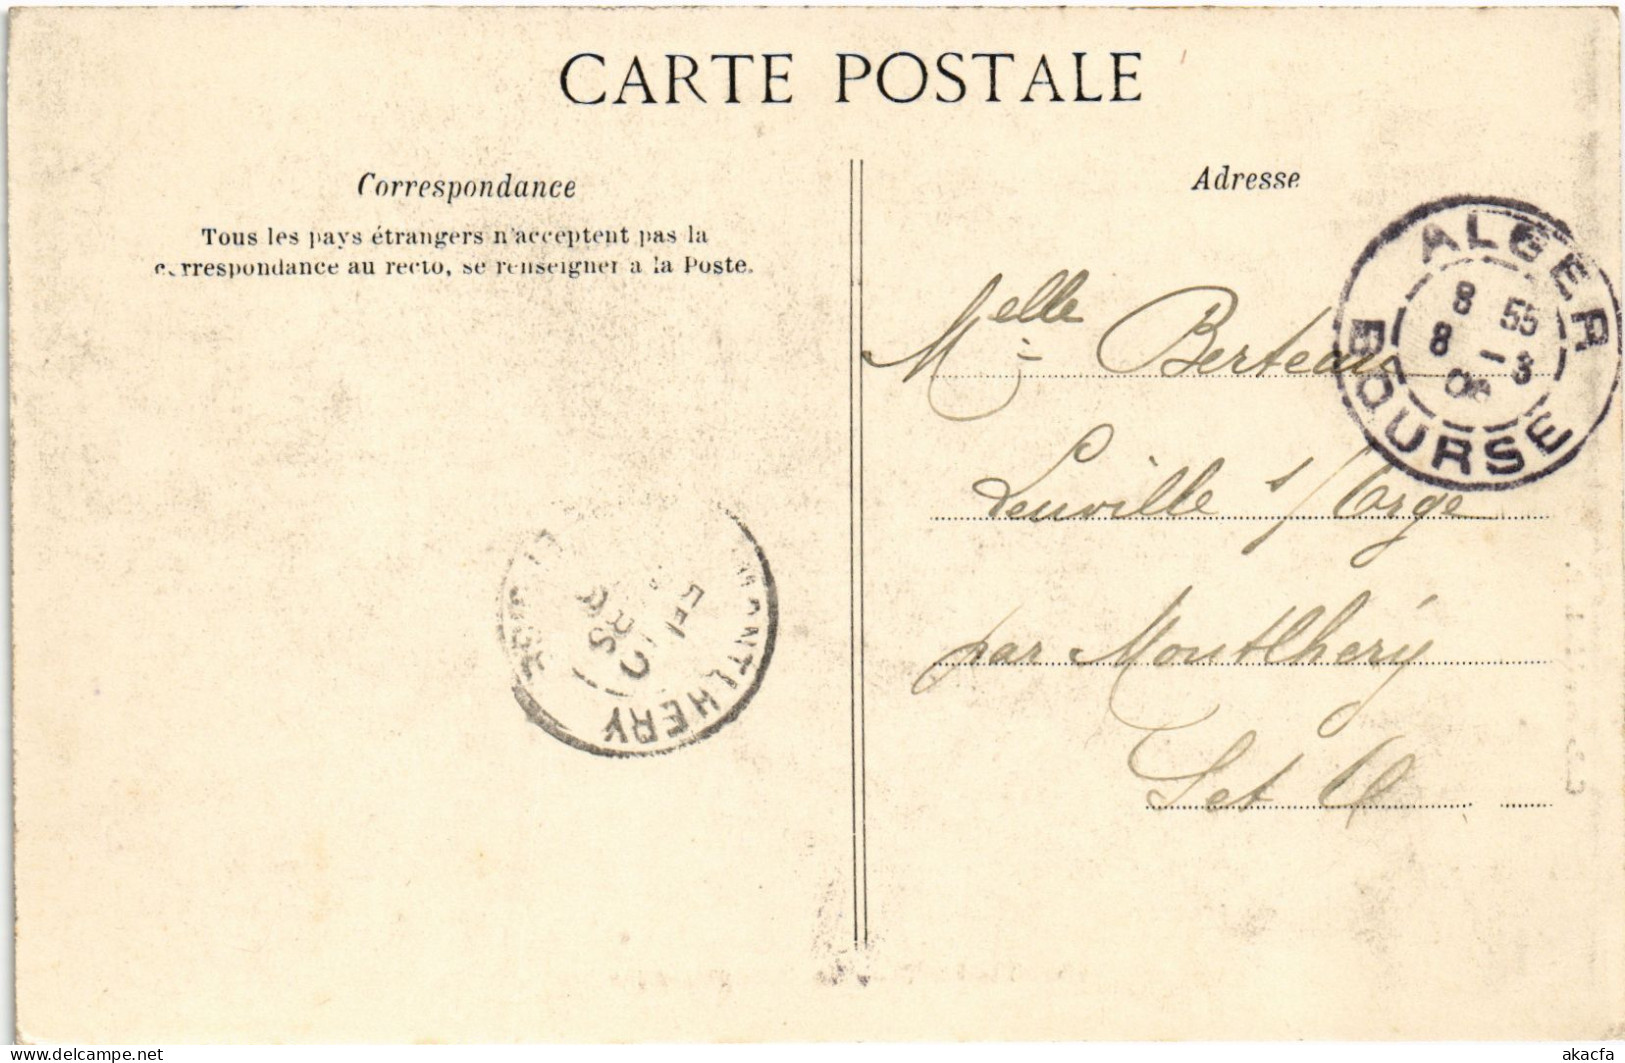 CARTE POSTALE
Correspondance
Tous les pays étrangers n'acceptent pas la
correspondance au recto, se renseigner a la Poste.
Adresse
Melle Berteau
Leuville s/ Orge
par Montlhéry
S et O
ALGER
8 55
8 -3
06
BOURSE
MONTLHERY
akacfa
www.delcampe.net